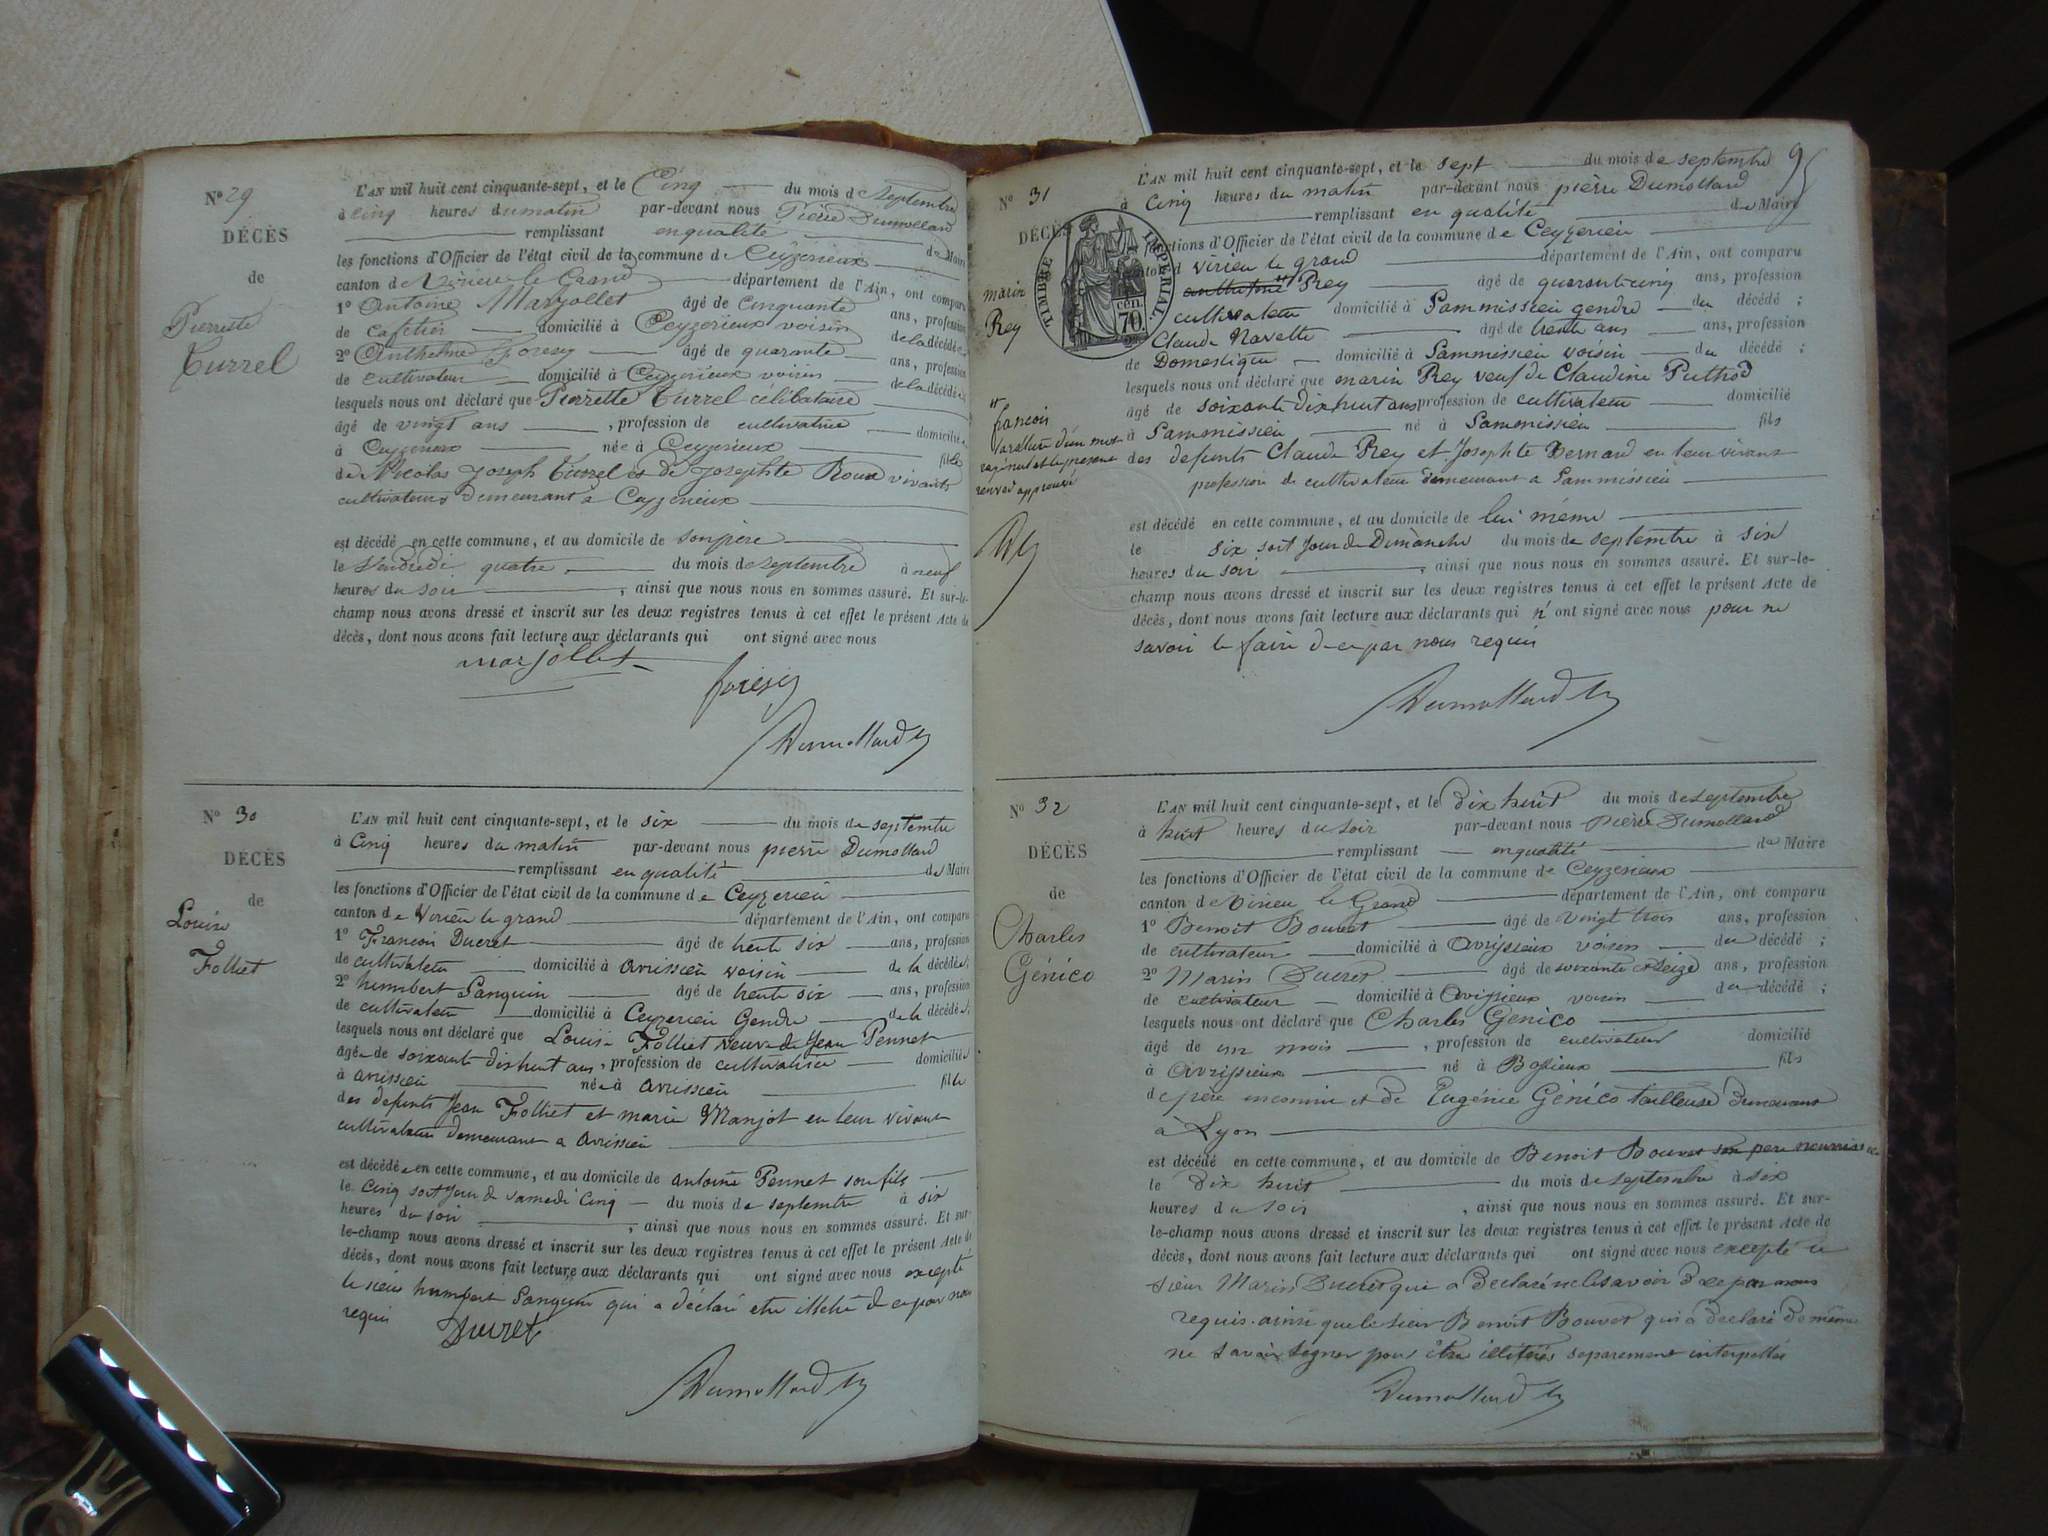 Nº 29
DÉCÈS
de
Pierrette
Turrel
L'AN mil huit cent cinquante-sept, et le Cinq du mois de Septembre
à cinq heures du matin par-devant nous Pierre Dumollard
remplissant en qualité de Maire
les fonctions d'Officier de l'état civil de la commune de Ceyzerieux
canton de Virieu le Grand département de l'Ain, ont comparu
1º Antoine Marjollet âgé de Cinquante ans, profession
de Cafetier domicilié à Ceyzerieux voisin de la décédée
2º Anthelme Foresey âgé de quarante ans, profession
de cultivateur domicilié à Ceyzerieux voisin de la décédée
lesquels nous ont déclaré que Pierrette Turrel célibataire
âgé de vingt ans , profession de cultivatrice domiciliée
à Ceyzerieux née à Ceyzerieux fille
de Nicolas Joseph Turrel et de Josephte Roux vivants
cultivateurs demeurant à Ceyzerieux
est décédé en cette commune, et au domicile de son père
le Vendredi quatre du mois de Septembre à neuf
heures du Soir , ainsi que nous nous en sommes assuré. Et sur-le-
champ nous avons dressé et inscrit sur les deux registres tenus à cet effet le présent Acte de
décès, dont nous avons fait lecture aux déclarants qui ont signé avec nous
marjollet
foresey
Dumollard
Nº 30
DÉCÈS
de
Louise
Folliet
L'AN mil huit cent cinquante-sept, et le six du mois de septembre
à Cinq heures du matin par-devant nous pierre Dumollard
remplissant en qualité de Maire
les fonctions d'Officier de l'état civil de la commune de Ceyzerieu
canton de Virieu le grand département de l'Ain, ont comparu
1º François Ducret âgé de trente six ans, profession
de cultivateur domicilié à avrissieu voisin de la décédée;
2º humbert Sanguin âgé de trente six ans, profession
de cultivateur domicilié à Ceyzerieu Gendre de la décédée;
lesquels nous ont déclaré que Louise Folliet veuve de Jean Pennet
âgée de soixante dixhuit ans, profession de cultivatrice domiciliée
à avrissieu née à avrissieu fille
des defunts Jean Folliet et marie Marjot en leur vivant
cultivateurs demeurant a avrissieu
est décédée en cette commune, et au domicile de antoine Pennet son fils
le cinq soit jour de samedi cinq du mois de septembre à six
heures du soir , ainsi que nous nous en sommes assuré. Et sur-
le-champ nous avons dressé et inscrit sur les deux registres tenus à cet effet le présent Acte de
décès, dont nous avons fait lecture aux déclarants qui ont signé avec nous excepté
le sieur humbert Sanguin qui a déclaré etre illetré de ce par nous
requis
Ducret
Dumollard
95
Nº 31
DÉCÈS
marin
Rey
TIMBRE IMPERIAL.
70 cen.
françois
renvoi approuvé
L'AN mil huit cent cinquante-sept, et le sept du mois de septembre
à Cinq heures du matin par-devant nous pierre Dumollard
remplissant en qualité de Maire
fonctions d'Officier de l'état civil de la commune de Ceyzerieu
virieu le grand département de l'Ain, ont comparu
Rey âgé de quarante cinq ans, profession
cultivateur domicilié à Sammissieu gendre du décédé ;
Claude Navette âgé de trente ans ans, profession
de Domestique domicilié à Sammissieu voisin du décédé ;
lesquels nous ont déclaré que marin Rey veuf de Claudine Puthod
âgé de soixante dixhuit ans profession de cultivateur domicilié
à Sammissieu né à Sammissieu fils
des defunts Claude Rey et Josephte Bernard en leur vivant
profession de cultivateur demeurant a Sammissieu
est décédé en cette commune, et au domicile de lui même
le six soit jour de Dimanche du mois de septembre à six
heures du soir , ainsi que nous nous en sommes assuré. Et sur-le-
champ nous avons dressé et inscrit sur les deux registres tenus à cet effet le présent Acte de
décès, dont nous avons fait lecture aux déclarants qui n'ont signé avec nous pour ne
savoir le faire de ce par nous requis
Dumollard
Nº 32
DÉCÈS
de
Charles
Génico
L'AN mil huit cent cinquante-sept, et le Dix huit du mois de septembre
à huit heures du soir par-devant nous pierre Dumollard
remplissant en qualité de Maire
les fonctions d'Officier de l'état civil de la commune de Ceyzerieux
canton de Virieu le Grand département de l'Ain, ont comparu
1º Benoit Bouvet âgé de vingt trois ans, profession
de cultivateur domicilié à Avrissieux voisin du décédé ;
2º Marin Ducret âgé de soixante et seize ans, profession
de cultivateur domicilié à Avrissieux voisin du décédé ;
lesquels nous ont déclaré que Charles Génico
âgé de un mois , profession de cultivateur domicilié
à Avrissieux né à Bossieux fils
de père inconnu et de Eugénie Génico tailleuse demeurant
à Lyon
est décédé en cette commune, et au domicile de Benoit Bouvet son pere nourricier
le Dix huit du mois de septembre à six
heures du soir , ainsi que nous nous en sommes assuré. Et sur-
le-champ nous avons dressé et inscrit sur les deux registres tenus à cet effet le présent Acte de
décès, dont nous avons fait lecture aux déclarants qui ont signé avec nous excepté le
sieur Marin Ducret qui a déclaré ne le savoir de ce par nous
requis. ainsi que le sieur Benoit Bouvet qui a déclaré de même
ne savoir signer pour être illetrés separement interpellés
Dumollard